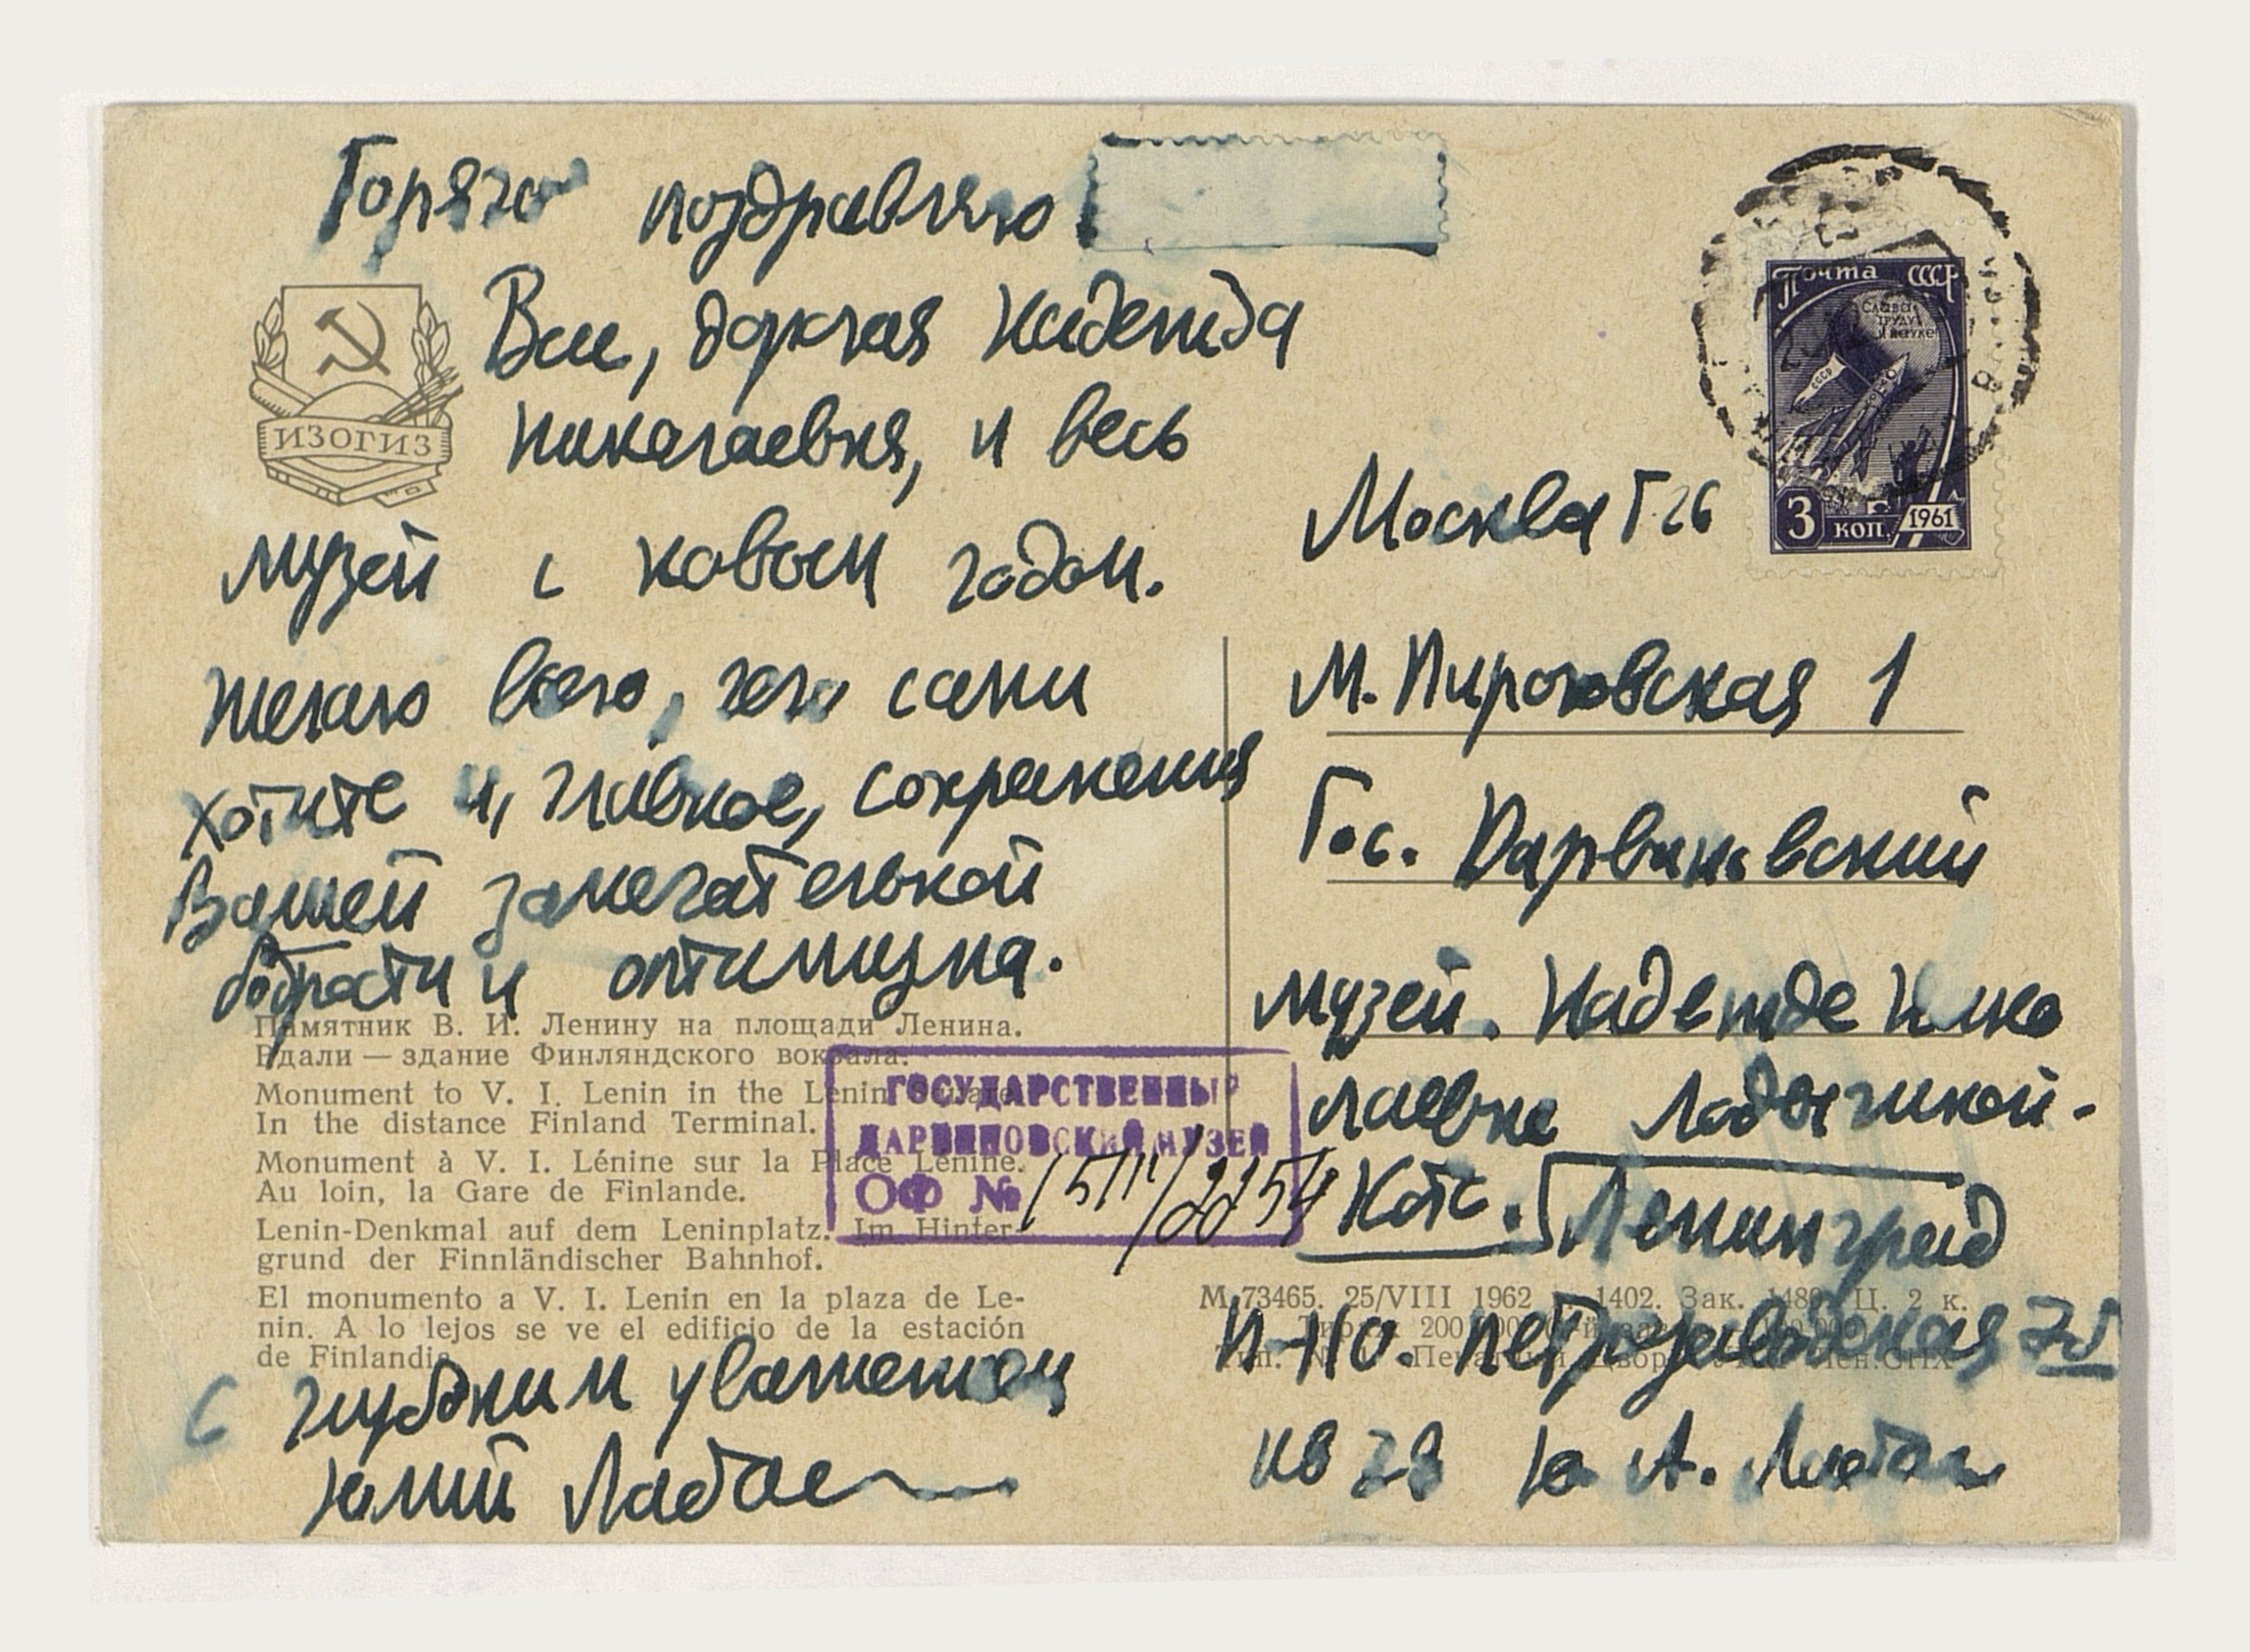 Горячо поздравляю
Вас, дорогая Надежда
Николаевна, и весь
музей с новым годом.
Желаю всего, чего сами
хотите и, главное, сохранения
Вашей замечательной
бодрости и оптимизма.
ИЗОГИЗ
Памятник В. И. Ленину на площади Ленина.
Вдали — здание Финляндского вокзала.
Monument to V. I. Lenin in the Lenin Square.
In the distance Finland Terminal.
Monument à V. I. Lénine sur la Place Lénine.
Au loin, la Gare de Finlande.
Lenin-Denkmal auf dem Leninplatz. Im Hinter-
grund der Finnländischer Bahnhof.
El monumento a V. I. Lenin en la plaza de Le-
nin. A lo lejos se ve el edificio de la estación
de Finlandia
С глубоким уважением
Юлий Лабас
ГОСУДАРСТВЕННЫЙ
ДАРВИНОВСКИЙ МУЗЕЙ
ОФ №
Почта СССР
Слава
труду
и науке
СССР
3 коп. 1961
Москва Г 26
М. Пироговская 1
Гос. Дарвиновский
музей. Надежде Нико
лаевне Ладыгиной-
Котс. Ленинград
П-110. Петрозаводская
М-73465. 25/VIII 1962 1402. Зак. 1480. Ц. 2 к.
кв Ю. А. Лабас